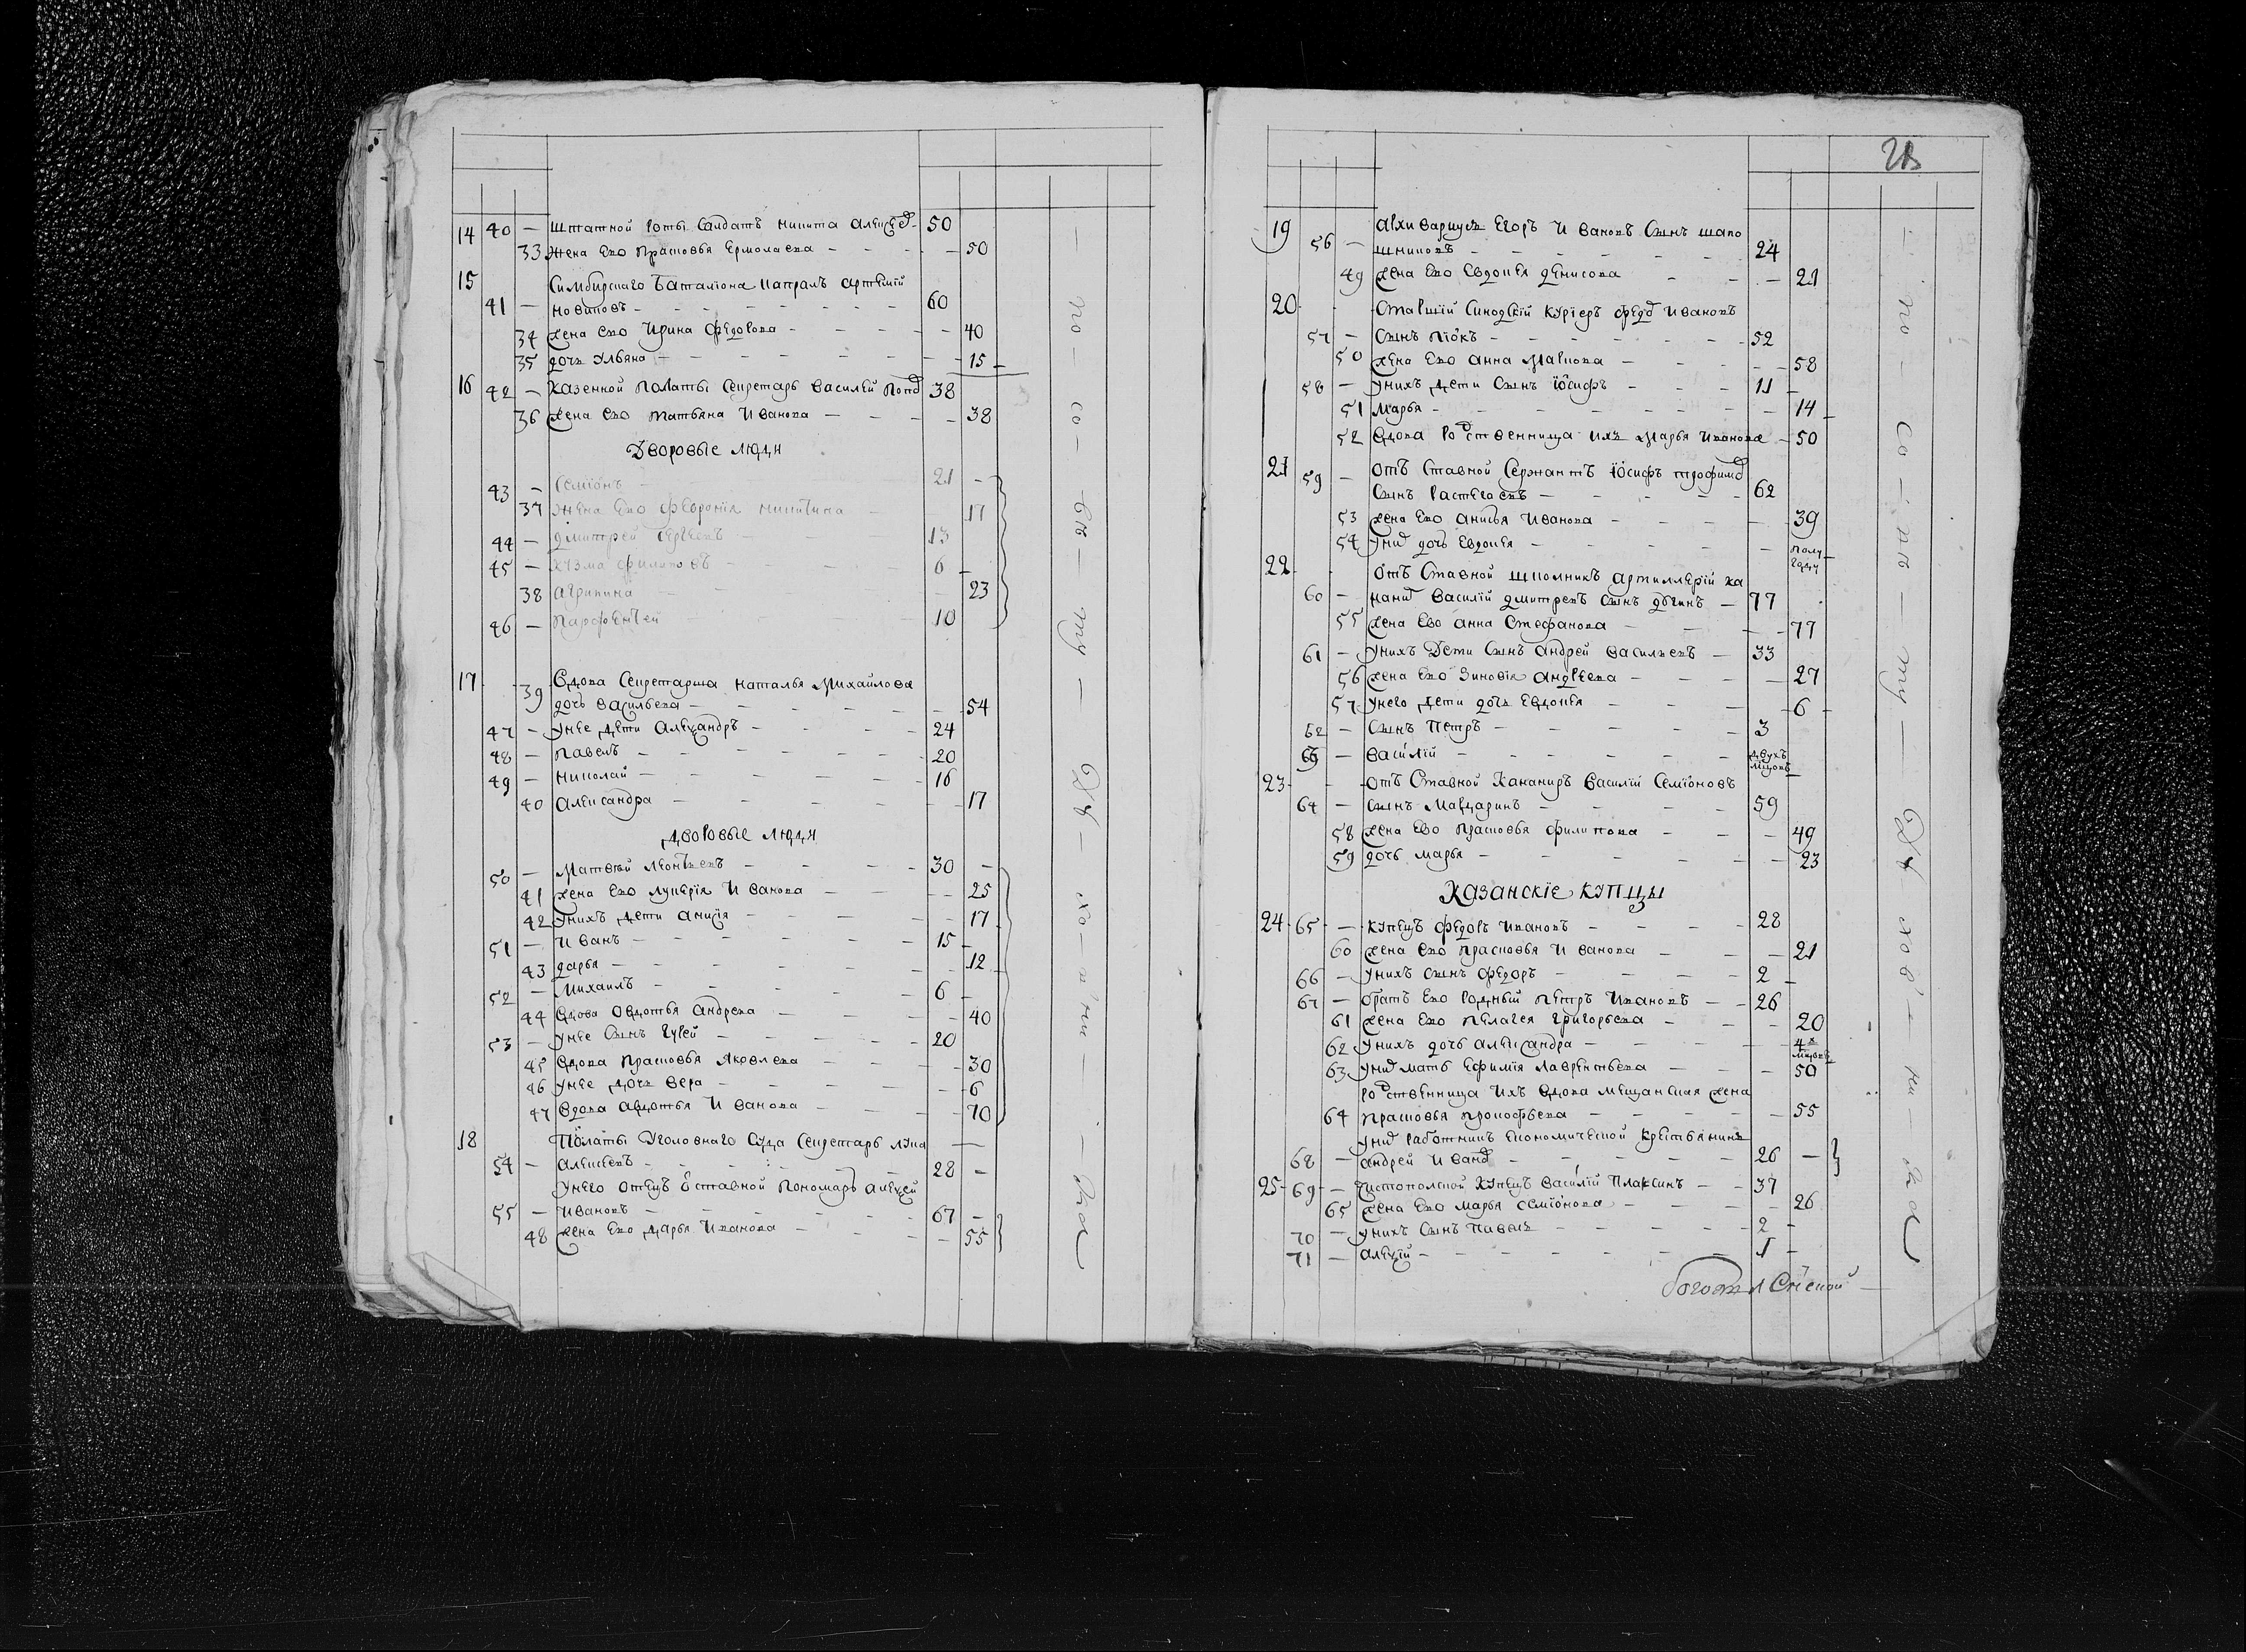 14 40 — Штатной роты Салдатъ никита алексеевъ 50
33 Жена Ево Прасковья Ермолаева — 50
15 Симбирскаго Баталіона капралъ артемій
41 — новиковъ — 60
34 жена ево Ирина Федорова — 40
35 дочь Ульяна — 15
16 42 — Казенной Полаты Секретарь Василей 38
36 жена ево татьяна Иванова — 38
Дворовые люди
43 — Семіонъ — 21
37 жена Ево Февронія никитина — 17
44 — Дмитрей Сергеевъ — 13
45 — Кузма филиповъ — 6
38 агрипина — 23
46 — Парфентей — 10
17 39 Вдова Секретарша наталья Михайлова
дочь васильева — 54
47 — унее дети Александръ — 24
48 — павелъ — 20
49 — николай — 16
40 александра — 17
дворовые люди
50 — Матвей Леонтьевъ — 30
41 жена Ево лукерія Иванова — 25
42 унихъ дети анисія — 17
51 — Иванъ — 15
43 дарья — 12
52 — Михаилъ — 6
44 вдова овдотья андрева — 40
53 — унее Сынъ Гурей — 20
45 вдова прасковья Яковлева — 30
46 унее дочь вера — 6
47 вдова авдотья Иванова — 70
18 Полаты Уголовнаго Суда Секретарь лука
54 — алексеевъ — 28
унего отецъ отставной Пономарь алексей
55 — Ивановъ — 67
48 жена Ево дарья Иванова — 55
19 архивариусъ Егоръ Ивановъ Сынъ шапо
56 — шниковъ — 24
49 жена Ево Евдокия денисова — 21
20 Ставший Синодский курїеръ федоръ Ивановъ
57 — Сынъ — 52
50 жена Ево анна Маркова — 58
58 — унихъ дети Сынъ Іосифъ — 11
51 Марья — 14
52 вдова родственница ихъ марья Иванова — 50
21 59 — отъ Ставной Сержантъ Іосифъ трофимовъ
Сынъ растегаевъ — 62
53 жена Ево анисья Иванова — 39
54 унихъ дочь Евдокея — полу
году
22 отъ Ставной школникъ артиллерїй ка
60 — манды Василій дмитревъ Сынъ — 77
55 жена Ево анна Стефанова — 77
61 — унихъ Дети Сынъ андрей васильевъ — 33
56 жена Ево Зиновія андреева — 27
57 унего дети дочь Евдокея — 6
62 — Сынъ Петръ — 3
63 — Василій — двухъ
мцовъ
23 отъ Ставной Кананиръ Василій Семіоновъ
64 — Сынъ — 59
58 жена Ево прасковья филипова — 49
59 дочь марья — 23
Казанскіе купцы
24 65 — купецъ федоръ Ивановъ — 28
60 жена ево прасковья Иванова — 21
66 — унихъ сынъ федоръ — 2
67 — братъ Ево родный петръ Ивановъ — 26
61 жена Ево пелагея григорьева — 20
62 унихъ дочь александра — 4х
мцовъ
63 унихъ мать Ефимія лаврентьева — 50
родственница ихъ вдова мещанская жена
64 прасковья прокофьева — 55
унихъ работникъ Економической крестьянинъ
68 — андрей Ивановъ — 26
25 69 — Чистопольской купецъ василій Плаксинъ — 37
65 жена Ево марья семіонова — 26
70 — унихъ Сынъ павелъ — 2
71 — алексій — 1